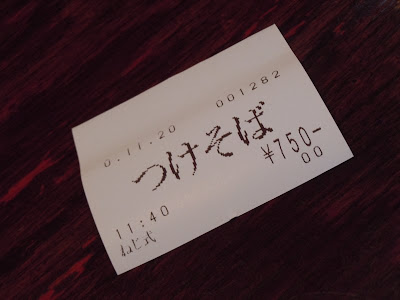 001282
0.11.20
つけそば
¥750-
00
11:40
ねじ式